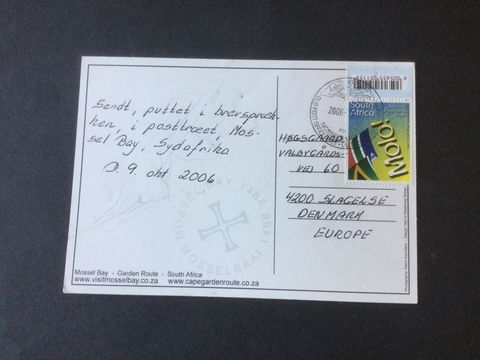 Sendt, puttet i brevspræk-
ken, i posttræet, Mos-
sel Bay, Sydafrika
D. 9. okt 2006
MOSSEL BAY 1488
MOSSELBAAI 1488
Mossel Bay - Garden Route - South Africa
www.visitmosselbay.co.za www.capegardenroute.co.za
2006
South Africa
Molo!
HØGSGAARD
VALBYGÅRDS-
VEJ 60
4200 SLAGELSE
DENMARK
EUROPE